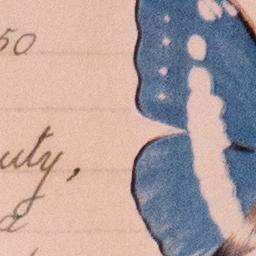 50
uty,
a